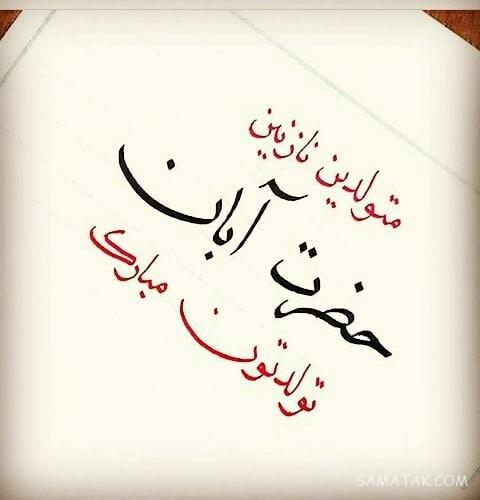 متولدین نازنین
حضرت آبان
تولدتون مبارک
SAMATAK.COM